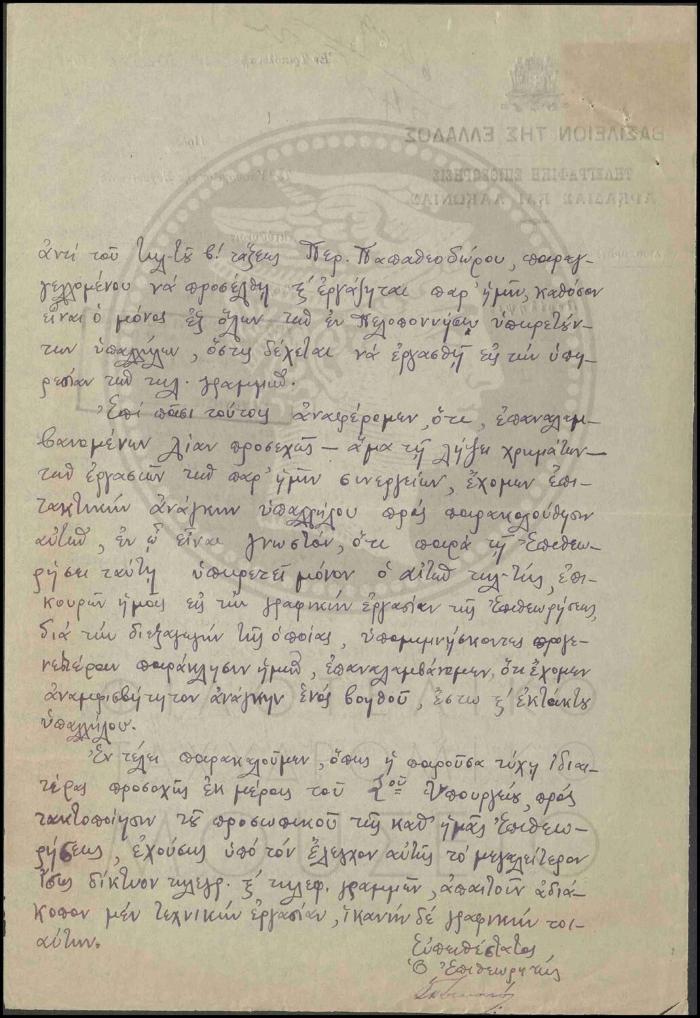 ἀντὶ τοῦ τηλ-τοῦ β! τάξεως Περ. Παπαθεοδώρου, παραγ-
γελλομένου νὰ προσέλθῃ κ' ἐργάζηται παρ' ἡμῖν, καθόσον
εἶναι ὁ μόνος ἐξ ὅλων τῶν ἐν Πελοποννήσῳ ὑπηρετούν-
των ὑπαλλήλων, ὅστις δέχεται νὰ ἐργασθῇ εἰς τὴν ὑπη-
ρεσίαν τῶν τηλ. γραμμῶν.
Ἐπὶ πᾶσι τούτοις ἀναφέρομεν, ὅτι, ἐπαναλαμ-
βανομένων λίαν προσεχῶς – ἅμα τῇ λήξει χρημάτων –
τῶν ἐργασιῶν τῶν παρ' ἡμῖν συνεργείων, ἔχομεν ἐπι-
τακτικὴν ἀνάγκην ὑπαλλήλου πρὸς παρακολούθησιν
αὐτῶν, ἐν ᾧ εἶναι γνωστόν, ὅτι παρὰ τῇ Ἐπιθεω-
ρήσει ταύτῃ ὑπηρετεῖ μόνον ὁ τηλ-τής, ἐπι-
κουρῶν ἡμᾶς εἰς τὴν γραφικὴν ἐργασίαν τῆς Ἐπιθεωρήσεως,
διὰ τὴν διεξαγωγὴν τῆς ὁποίας, ὑπομιμνήσκοντες προγε-
νεστέραν παράκλησιν ἡμῶν, ἐπαναλαμβάνομεν, ὅτι ἔχομεν
ἀναμφισβήτητον ἀνάγκην ἑνὸς βοηθοῦ, ἔστω κ' ἐκτάκτου
ὑπαλλήλου.
Ἐν τέλει παρακαλοῦμεν, ὅπως ἡ παροῦσα τύχῃ ἰδιαι-
τέρας προσοχῆς ἐκ μέρους τοῦ Σοῦ Ὑπουργείου, πρὸς
τακτοποίησιν τοῦ προσωπικοῦ τῆς καθ' ἡμᾶς Ἐπιθεω-
ρήσεως, ἐχούσης ὑπὸ τὸν ἔλεγχον αὐτῆς τὸ μεγαλείτερον
ἴσως δίκτυον τηλεγρ. κ' τηλεφ. γραμμῶν, ἀπαιτοῦν ἀδιά-
κοπον μὲν τεχνικὴν ἐργασίαν, ἱκανὴν δὲ γραφικὴν τοι-
αύτην.
Εὐπειθέστατος
Ὁ Ἐπιθεωρητής